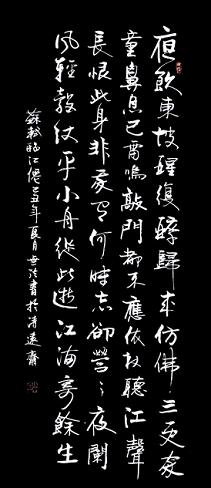 夜飲東坡醒復醉歸來仿佛三更家
童鼻息已雷鳴敲門都不應依杖聽江聲
長恨此身非我有何時忘卻營々夜闌
風輕縠紋平小舟從此逝江海寄餘生
蘇軾臨江仙己丑年夏月書於遠齋